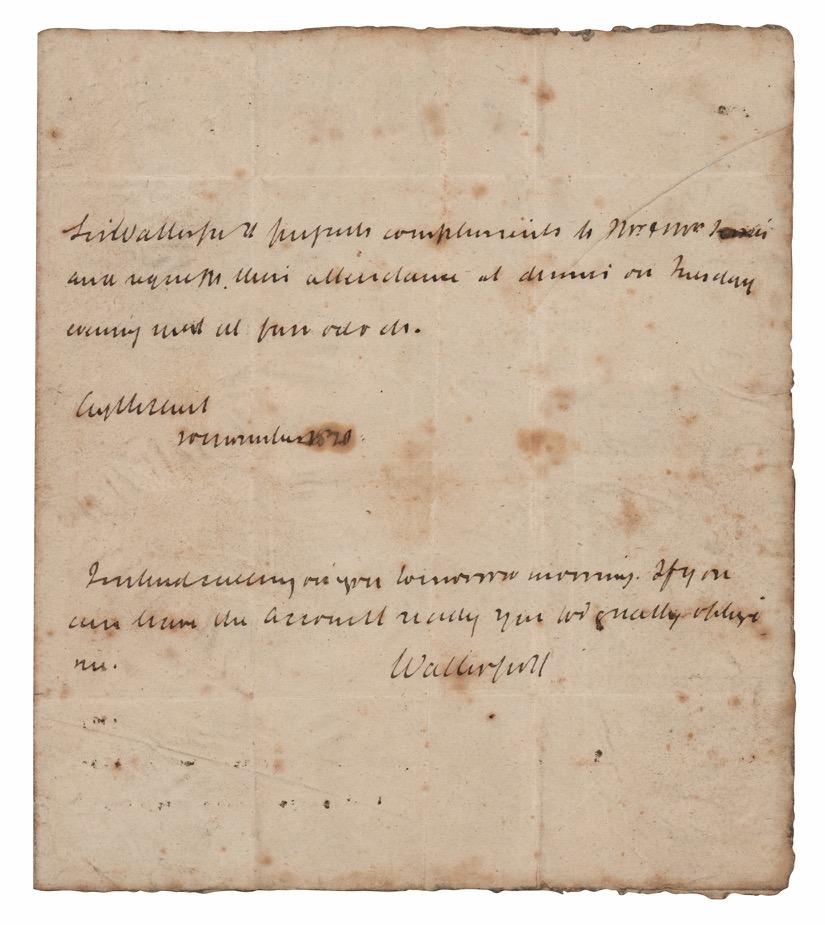 Sir Walter Scott presents complements to Mr & Mrs
and requests their attendance at dinner on Tuesday
evening next at four o clock.
Castlestreet
10 November 1828
I intend calling on you tomorrow morning. If you
can have the account ready you wd greatly oblige
me.
Walter Scott